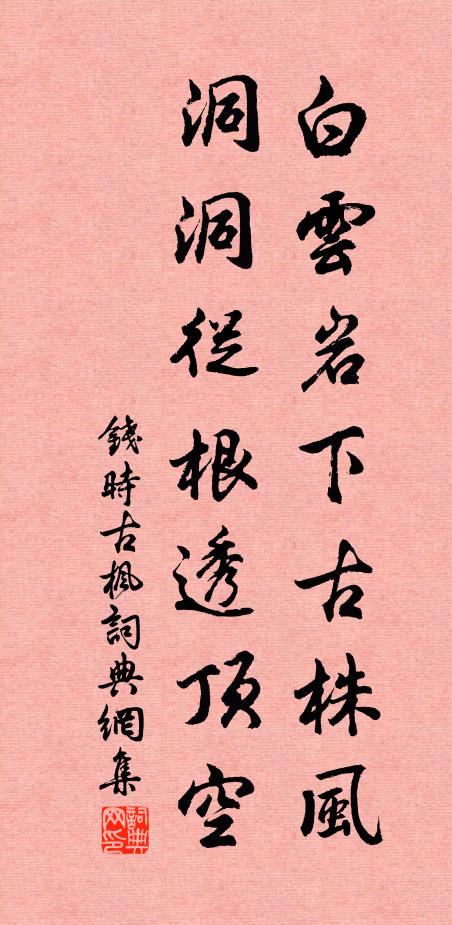 白雲岩下古株風
洞洞從根透頂空
錢時古楓詞典網集
詞典网印